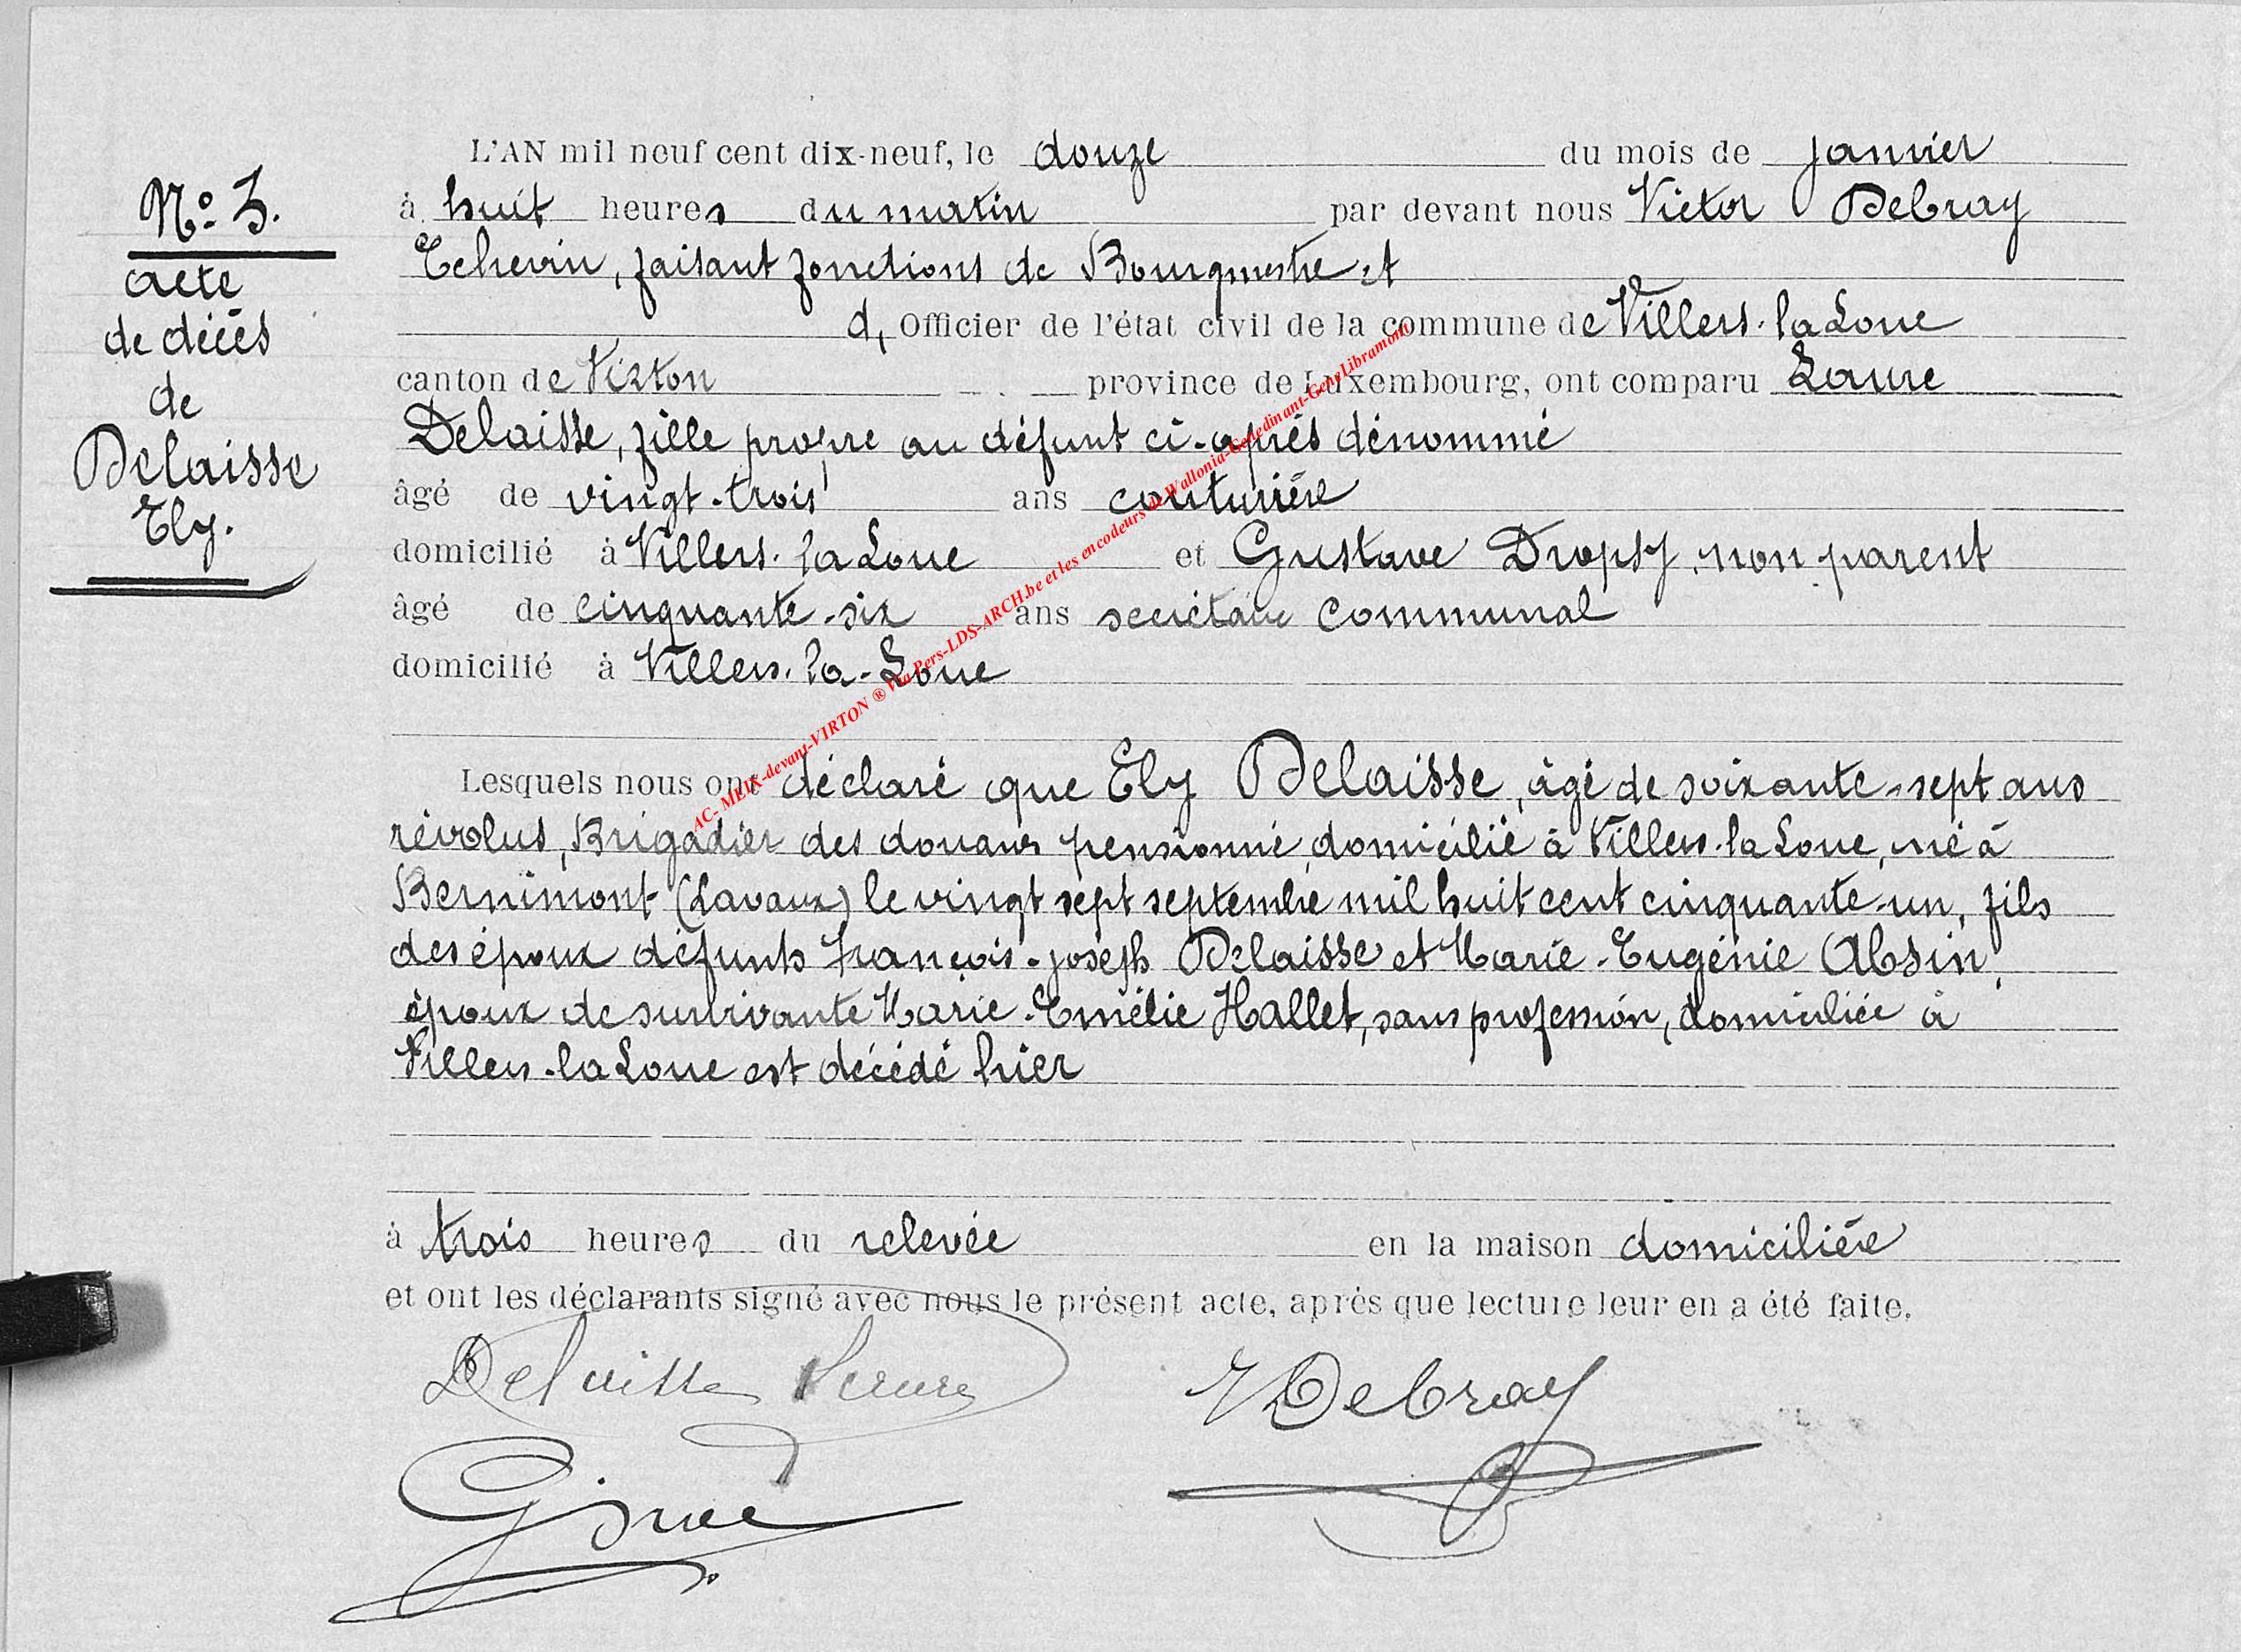 N° 3.
acte
de décès
de
Delaisse
Ely.
L'AN mil neuf cent dix-neuf, le douze du mois de janvier
à huit heures du matin par devant nous Victor Debray
Echevin, faisant fonctions de Bourgmestre et
d, Officier de l'état civil de la commune de Villers-la Loue
canton de Virton province de Luxembourg, ont comparu Laure
Delaisse, fille propre au défunt ci-après dénommé
âgé de vingt-trois ans couturière
domicilié à Villers-la Loue et Gustave Dropsy, non parent
âgé de cinquante-six ans secrétaire communal
domicilié à Villers-la-Loue
Lesquels nous ont déclaré que Ely Delaisse, âgé de soixante-sept ans
révolus, Brigadier des douanes pensionné, domicilié à Villers-la Loue, né à
Bernimont (Lavaux) le vingt sept septembre mil huit cent cinquante-un, fils
des époux défunts François-joseph Delaisse et Marie-Eugénie Absin,
époux de survivante Marie-Emélie Hallet, sans profession, domiciliée à
Villers-la Loue est décédé hier
à trois heures du relevée en la maison domicilière
et ont les déclarants signé avec nous le présent acte, après que lecture leur en a été faite.
Delaisse Laure
VDebray
AC- MEIX-devant-VIRTON ® Via Pers-LDS-ARCH.be et les encodeurs de Wallonia-Genedinant-GeneLibramont